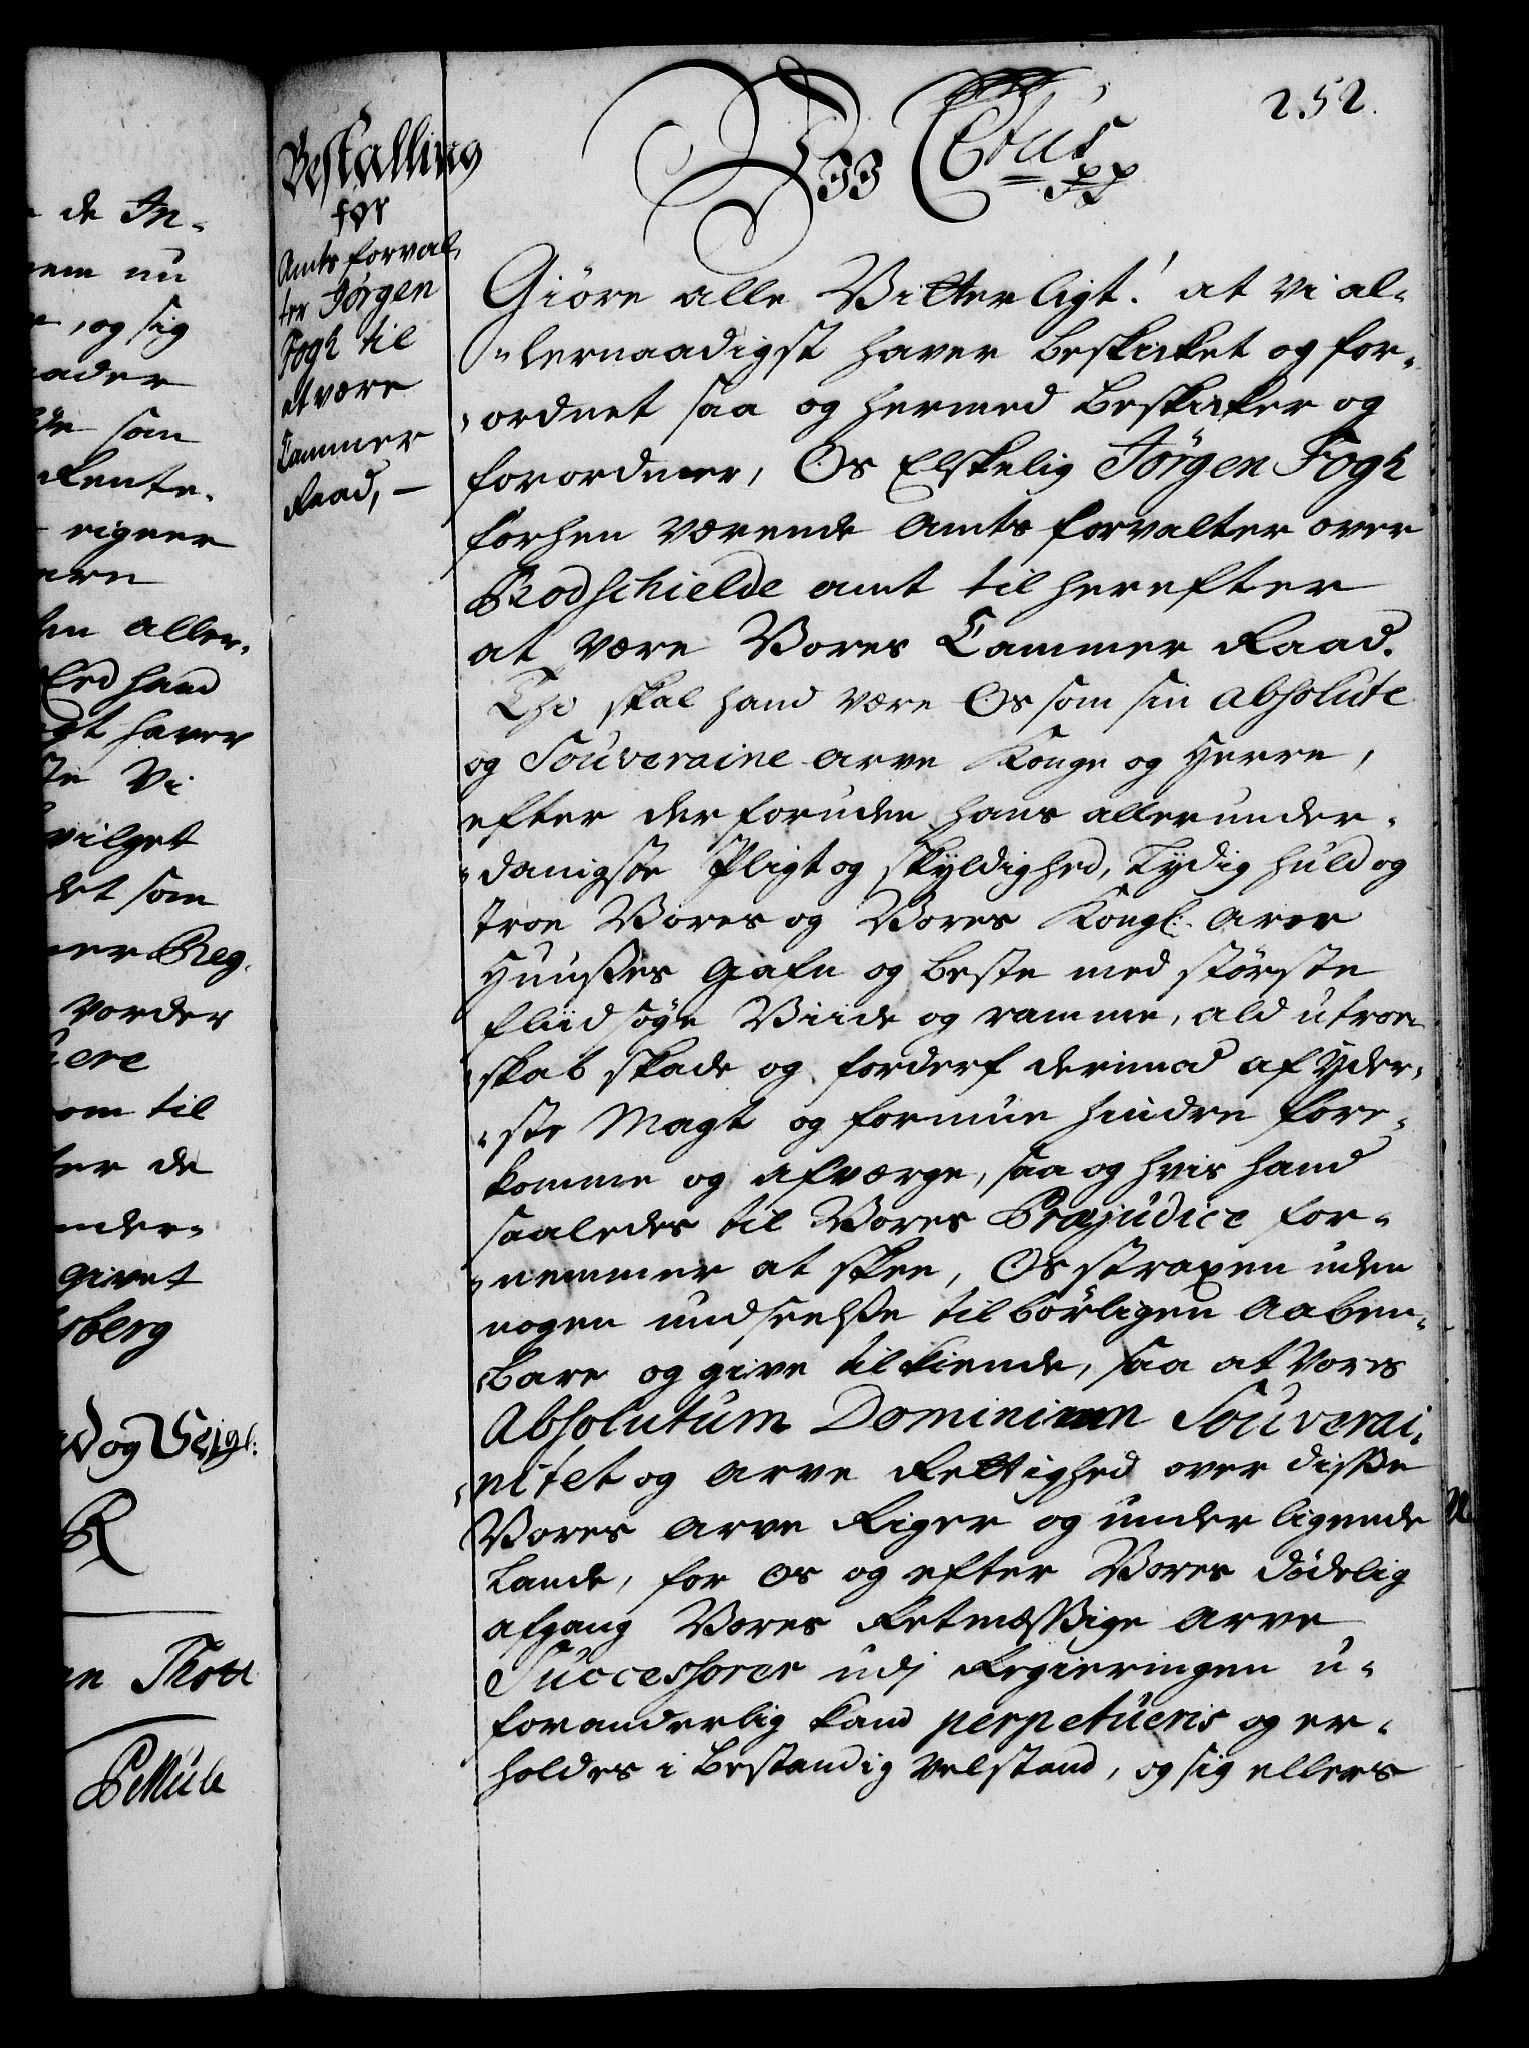 252.
Bestalling
for
Amtsforval-
ter Jörgen
Fogh til
at være
Cammer
Raad, —
Vii C6tus pp
Giöre alle Vitterligt! at Vi al-
lernaadigst haver beskicket og for-
ordnet saa og hermed beskicker og
forordner, Os Elskelig Jörgen Fogh
forhen værende Amtsforvalter over
Rodschielde amt til herefter
at være Vores Cammer Raad.
Thi skal hand være Os som sin absolute
og Souveraine arve Konge og Herre,
efter derforuden hans allerunder-
danigste Pligt og skyldighed, lydig huld og
troe Vores og Vores Kongl: arve
Huuses gafn og beste med störste
fliid söge Viide og ramme, ald utroe-
skab skade og forderf derimod af yder-
ste Magt og formue hindre fore-
komme og afværge, saa og hvis hand
saaledes til Vores Præjudice for-
nemmer at skee, Os straxen uden
nogen undseelse tilbörligen aaben-
bare og give tilkiende, saa at Vores
Absolutum Dominium Souverai-
nitet og arve Rettighed over disse
Vores arve Riger og underligende
Lande, for os og efter Vores dödelig
afgang Vores Retmæssige arve
Successorer udj Regieringen u-
foranderlig kand perpetueris og er-
holdes i bestandig velstand, og sig ellers
de In-
nu
, og sig
som
Rente-
eigner
aller-
hand
haver
Vi
som
Reg.
vorder
til
de
givet
og Seigl:
R
Thott